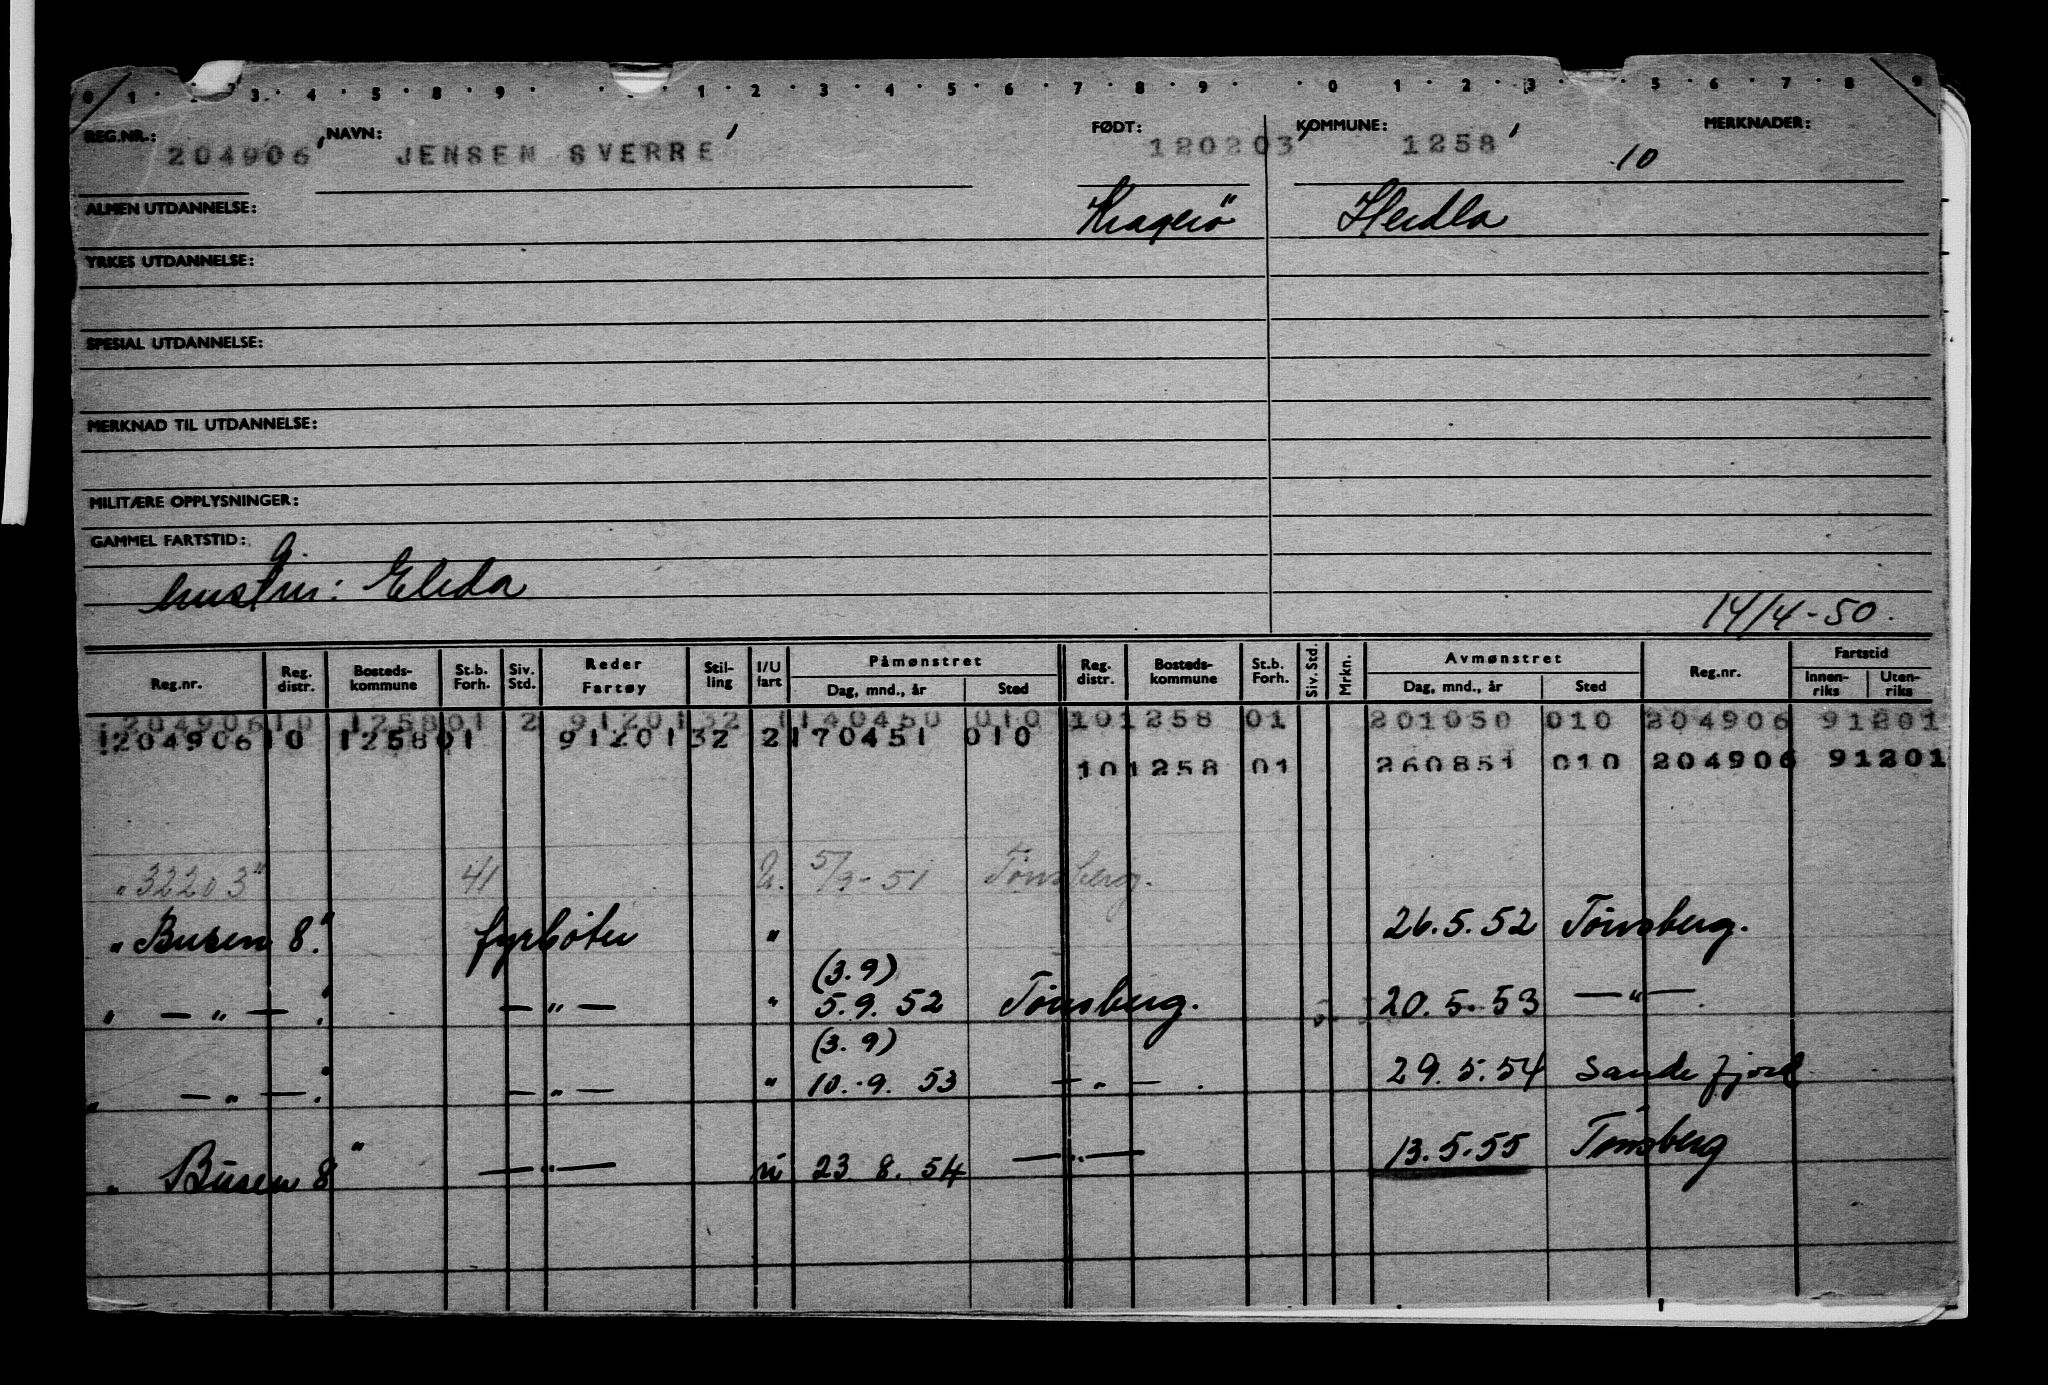 0 1 2 3 4 5 6 8 9 1 2 3 4 5 6 7 8 9 0 1 2 3 5 6 7 8 9
REG.NR.: 204906 NAVN: JENSEN SVERRE FØDT: 120203 KOMMUNE: 1258 MERKNADER:
10
ALMEN UTDANNELSE: Kragerö Herdla
YRKES UTDANNELSE:
SPESIAL UTDANNELSE:
MERKNAD TIL UTDANNELSE:
MILITÆRE OPPLYSNINGER:
GAMMEL FARTSTID: g.
hustru: Elida
14/4-50.
Reg.nr. Reg. distr. Bosteds-kommune St.b. Forh. Siv. Std. Reder Fartøy Stil-ling I/U fart Påmønstret Dag, mnd., år Sted Reg. distr. Bosteds-kommune St.b. Forh. Siv. Std. Mrkn. Avmønstret Dag, mnd., år Sted Reg.nr. Fartstid Innen-riks Uten-riks
204906 10 1258 01 2 91201 32 1 140450 010 10 1258 01 201050 010 204906 91201
204906 10 1258 01 91201 32 2 170451 010
10 1258 01 260851 010 204906 91201
" 32203 " 41 U. 5/9-51 Tønsberg.
" Busen 8." fyrbøter " 26.5.52 Tönsberg.
(3.9)
" — " — " — " — " 5.9.52 Tönsberg. 20.5.53 — " —.
(3.9)
" — " — " — " — " 10.9.53 — " — . 29.5.54 Sandefjord
" Busen 8 " — " — u 23 8.54 — " — 13.5.55 Tönsberg